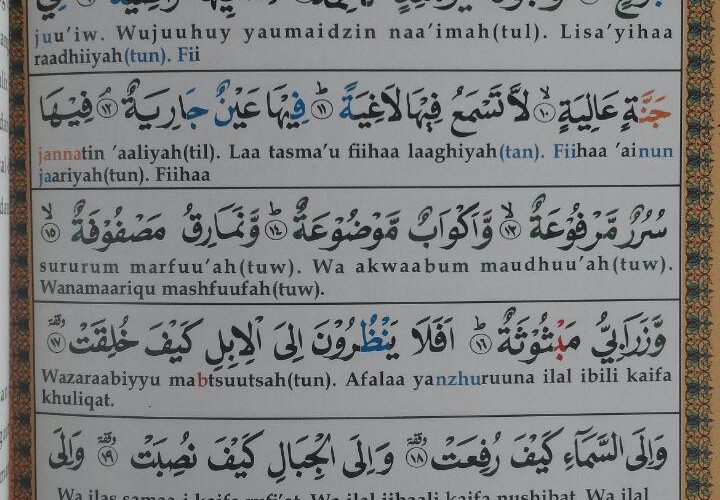 juu'iw. Wujuuhuy yaumaidzin naa'imah(tul). Lisa'yihaa
raadhiiyah(tun). Fii
جَنَّةٍ عَالِيَةٍۙ ١٠ لَّا تَسْمَعُ فِيْهَا لَاغِيَةًۗ ١١ فِيْهَا عَيْنٌ جَارِيَةٌۘ ١٢ فِيْهَا
jannatin 'aaliyah(til). Laa tasma'u fiihaa laaghiyah(tan). Fiihaa 'ainun
jaariyah(tun). Fiihaa
سُرُرٌ مَّرْفُوْعَةٌۙ ١٣ وَّاَكْوَابٌ مَّوْضُوْعَةٌۙ ١٤ وَّنَمَارِقُ مَصْفُوْفَةٌۙ ١٥
sururum marfuu'ah(tuw). Wa akwaabum maudhuu'ah(tuw).
Wanamaariqu mashfuufah(tuw).
وَّزَرَابِيُّ مَبْثُوْثَةٌۗ ١٦ اَفَلَا يَنْظُرُوْنَ اِلَى الْاِبِلِ كَيْفَ خُلِقَتْ ١٧
Wazaraabiyyu mabtsuutsah(tun). Afalaa yanzhuruuna ilal ibili kaifa
khuliqat.
وَاِلَى السَّمَاۤءِ كَيْفَ رُفِعَتْ ١٨ وَاِلَى الْجِبَالِ كَيْفَ نُصِبَتْ ١٩ وَاِلَى
Wa ilas samaa-i kaifa rufi'at. Wa ilal jibaali kaifa nushibat. Wa ilal